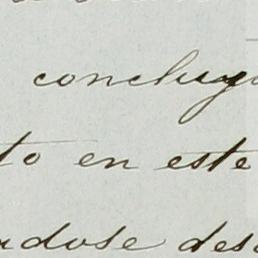 concluy
to en este
ndose des